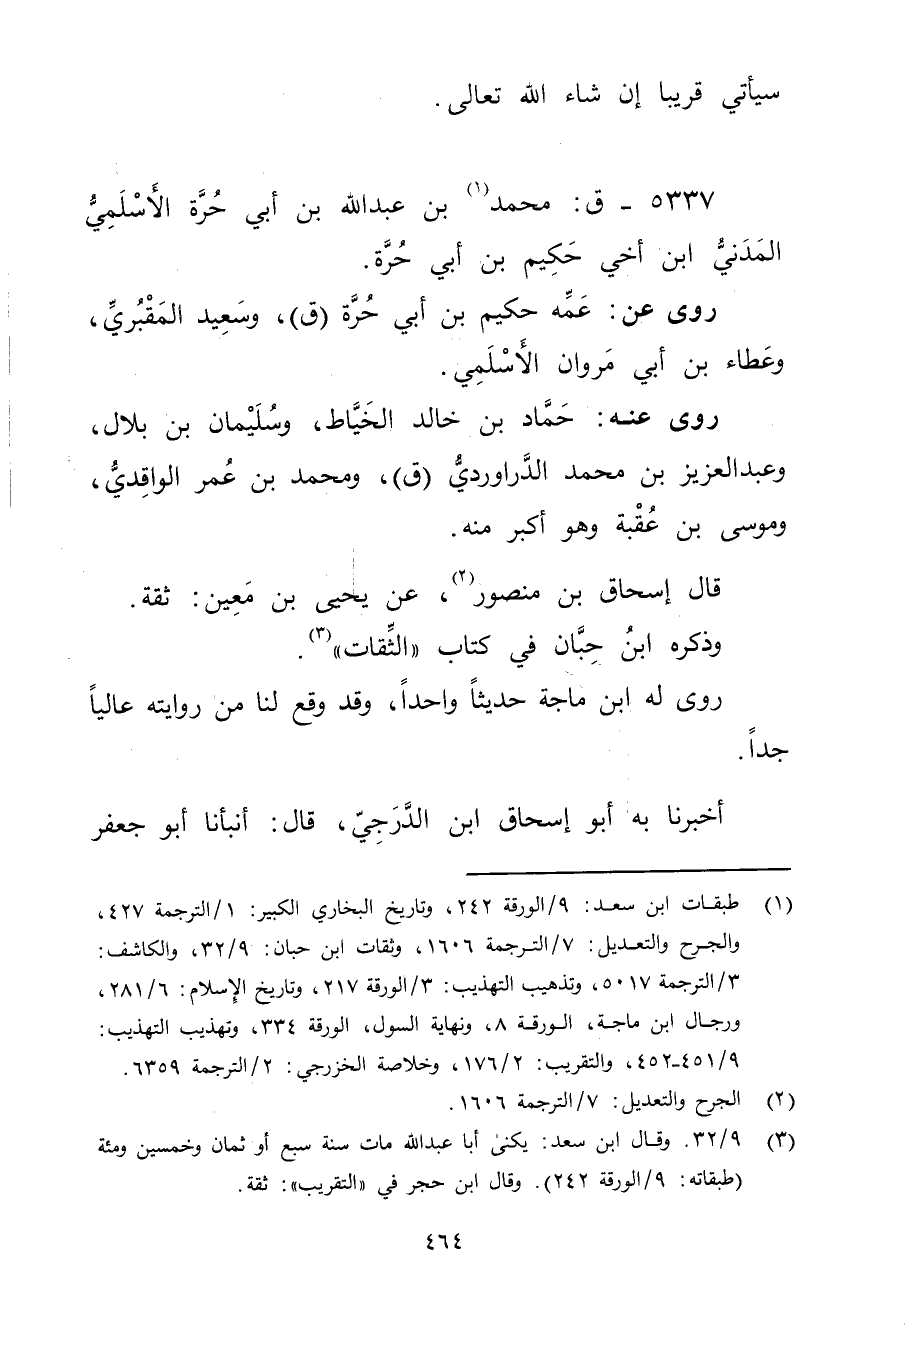 سيأتي قريبا إن شاء الله تعالى.
٥٣٣٧ ـ ق: محمد(١) بن عبدالله بن أبي حُرَّة الأَسْلَمِيُّ
المَدَنيُّ ابن أخي حَكِيم بن أبي حُرَّة.
روى عن: عَمِّه حكيم بن أبي حُرَّة (ق)، وسَعِيد المَقْبُريِّ،
وعَطاء بن أبي مَروان الأَسْلَمِي.
روى عنه: حَمَّاد بن خالد الخَيَّاط، وسُلَيْمان بن بلال،
وعبدالعزيز بن محمد الدَّراورديُّ (ق)، ومحمد بن عُمر الواقِديُّ،
وموسى بن عُقْبة وهو أكبر منه.
قال إسحاق بن منصور(٢)، عن يحيى بن مَعِين: ثقة.
وذكره ابنُ حِبَّان في كتاب «الثِّقات»(٣).
روى له ابن ماجة حديثاً واحداً، وقد وقع لنا من روايته عالياً
جداً.
أخبرنا به أبو إسحاق ابن الدَّرَجِيّ، قال: أنبأنا أبو جعفر
(١) طبقات ابن سعد: ٩/الورقة ٢٤٢، وتاريخ البخاري الكبير: ١/الترجمة ٤٢٧،
والجرح والتعديل: ٧/الترجمة ١٦٠٦، وثقات ابن حبان: ٣٢/٩، والكاشف:
٣/الترجمة ٥٠١٧، وتذهيب التهذيب: ٣/الورقة ٢١٧، وتاريخ الإسلام: ٢٨١/٦،
ورجال ابن ماجة، الورقة ٨، ونهاية السول، الورقة ٣٣٤، وتهذيب التهذيب:
٤٥١/٩ـ٤٥٢، والتقريب: ١٧٦/٢، وخلاصة الخزرجي: ٢/الترجمة ٦٣٥٩.
(٢) الجرح والتعديل: ٧/الترجمة ١٦٠٦.
(٣) ٣٢/٩. وقال ابن سعد: يكنىٰ أبا عبدالله مات سنة سبع أو ثمان وخمسين ومئة
(طبقاته: ٩/الورقة ٢٤٢). وقال ابن حجر في «التقريب»: ثقة.
٤٦٤